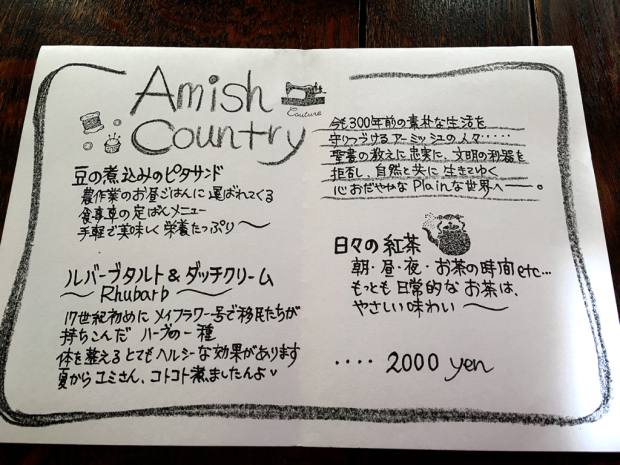 Amish
Country
Couture
豆の煮込みのピタサンド
農作業のお昼ごはんに運ばれてくる
食事章の定ばんメニュー
手軽で美味しく栄養たっぷり〜
ルバーブタルト&ダッチクリーム
〜Rhubarb〜
17世紀初めにメイフラワー号で移民たちが
持ちこんだ ハーブの一種
体を整えるとてもヘルシーな効果があります
夏からユミさん、コトコト煮ましたんよ♥
今も300年前の素朴な生活を
守りつづけるアーミッシュの人々・・・・・
聖書の教えに忠実に、文明の利器を
拒否し、自然と共に生きてゆく
心おだやかなPlainな世界へ――。
日々の紅茶
朝・昼・夜・お茶の時間etc...
もっとも日常的なお茶は、
やさしい味わい〜
・・・・2000 yen